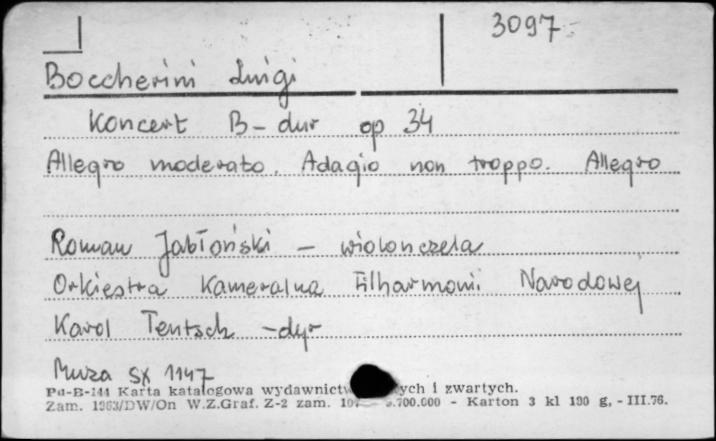 3097
Boccherini Luigi
Koncert B-dur op 34
Allegro moderato. Adagio non troppo. Allegro
Roman Jabłoński - wiolonczela
Orkiestra Kameralna Filharmonii Narodowej
Karol Teutsch - dyr
Muza SX 1147
Pu-B-144 Karta katalogowa wydawnictw ych i zwartych.
Zam. 1963/DW/On W.Z.Graf. Z-2 zam. .700.000 - Karton 3 kl 190 g, - III.76.